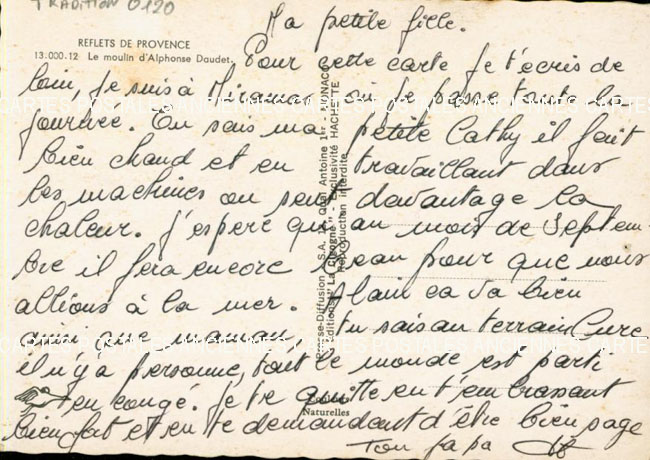 TRADITION 0120
Ma petite fille.
REFLETS DE PROVENCE
13.000.12 Le moulin d'Alphonse Daudet.
Pour cette carte je t'écris de
loin, je suis à Miramas où je passe toute la
journée. Tu sais ma petite Cathy il fait
bien chaud et en travaillant dans
les machines on sent davantage la
chaleur. J'espère qu'au mois de Septem
bre il fera encore beau pour que nous
allions à la mer. Alain ca va bien
ainsi que maman tu sais au terrain
il n'y a personne, tout le monde est parti
en congé. Je te quitte en t'embrassant
bien fort et en te demandant d'être bien sage
Ton papa
Presse-Diffusion S.A. Quai Antoine 1er - MONACO
Éditions "La Cigogne" - Exclusivité HACHETTE
Reproduction interdite
Naturelles
CARTES POSTALES ANCIENNES